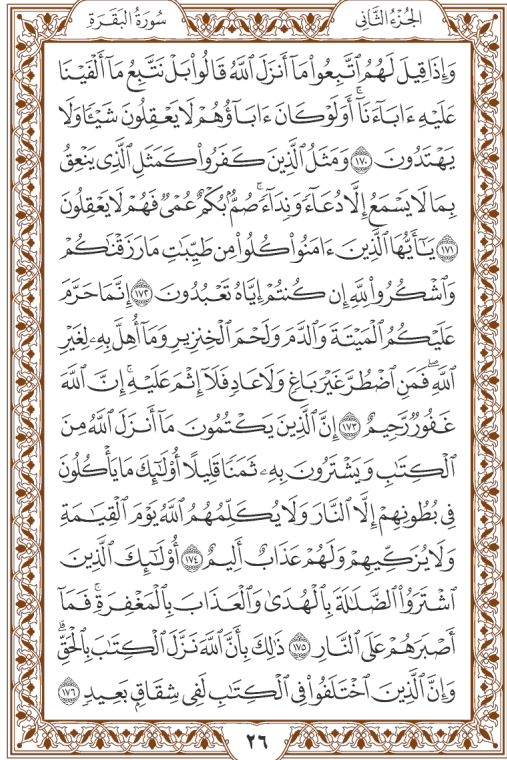 الجُزْءُ الثَّانِي
سُورَةُ البَقَرَةِ
وَإِذَا قِيلَ لَهُمُ ٱتَّبِعُواْ مَآ أَنزَلَ ٱللَّهُ قَالُواْ بَلْ نَتَّبِعُ مَآ أَلْفَيْنَا
عَلَيْهِ ءَابَآءَنَآۚ أَوَلَوْ كَانَ ءَابَآؤُهُمْ لَا يَعْقِلُونَ شَيْـًٔا وَلَا
يَهْتَدُونَ ١٧٠ وَمَثَلُ ٱلَّذِينَ كَفَرُواْ كَمَثَلِ ٱلَّذِى يَنْعِقُ
بِمَا لَا يَسْمَعُ إِلَّا دُعَآءً وَنِدَآءًۚ صُمُّۢ بُكْمٌ عُمْىٌ فَهُمْ لَا يَعْقِلُونَ
١٧١ يَـٰٓأَيُّهَا ٱلَّذِينَ ءَامَنُواْ كُلُواْ مِن طَيِّبَـٰتِ مَا رَزَقْنَـٰكُمْ
وَٱشْكُرُواْ لِلَّهِ إِن كُنتُمْ إِيَّاهُ تَعْبُدُونَ ١٧٢ إِنَّمَا حَرَّمَ
عَلَيْكُمُ ٱلْمَيْتَةَ وَٱلدَّمَ وَلَحْمَ ٱلْخِنزِيرِ وَمَآ أُهِلَّ بِهِۦ لِغَيْرِ
ٱللَّهِۖ فَمَنِ ٱضْطُرَّ غَيْرَ بَاغٍ وَلَا عَادٍ فَلَآ إِثْمَ عَلَيْهِۚ إِنَّ ٱللَّهَ
غَفُورٌ رَّحِيمٌ ١٧٣ إِنَّ ٱلَّذِينَ يَكْتُمُونَ مَآ أَنزَلَ ٱللَّهُ مِنَ
ٱلْكِتَـٰبِ وَيَشْتَرُونَ بِهِۦ ثَمَنًا قَلِيلًا أُوْلَـٰٓئِكَ مَا يَأْكُلُونَ
فِى بُطُونِهِمْ إِلَّا ٱلنَّارَ وَلَا يُكَلِّمُهُمُ ٱللَّهُ يَوْمَ ٱلْقِيَـٰمَةِ
وَلَا يُزَكِّيهِمْ وَلَهُمْ عَذَابٌ أَلِيمٌ ١٧٤ أُوْلَـٰٓئِكَ ٱلَّذِينَ
ٱشْتَرَوُاْ ٱلضَّلَـٰلَةَ بِٱلْهُدَىٰ وَٱلْعَذَابَ بِٱلْمَغْفِرَةِۚ فَمَآ
أَصْبَرَهُمْ عَلَى ٱلنَّارِ ١٧٥ ذَٰلِكَ بِأَنَّ ٱللَّهَ نَزَّلَ ٱلْكِتَـٰبَ بِٱلْحَقِّۗ
وَإِنَّ ٱلَّذِينَ ٱخْتَلَفُواْ فِى ٱلْكِتَـٰبِ لَفِى شِقَاقٍۭ بَعِيدٍ ١٧٦
٢٦